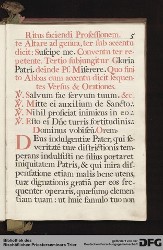 Ritus faciendi Professionem. 5
te Altare ad genua, ter sub accentu
dicit: Suscipe me. Conventu ter re-
petente. Tertio subjungitur Gloria
Patri. deinde Ps. Miserere. Quo fini-
to Abbas cum accentu dicit sequen-
tes Versus & Orationes.
℣. Salvum fac servum tuum. &c.
℣. Mitte ei auxilium de Sancto.
℣. Nihil proficiat inimicus in eo
℣. Esto ei Dñe turris fortitudinis.
Dominus vobiscũ. Orem
Deus indulgentiæ Pater, qui se-
veritatẽ tuæ districtionis tem-
perans indulsisti ne filius portaret
iniquitatem Patris, & qui mira dis-
pensatione etiam malis bene utens
tuæ dignationis gratiã per eos fre-
quenter operaris, quæsumus clemen-
tiam tuam: ut huic famulo tuo non
Bibliothek des
Bischöflichen Priesterseminars Trier
DFG